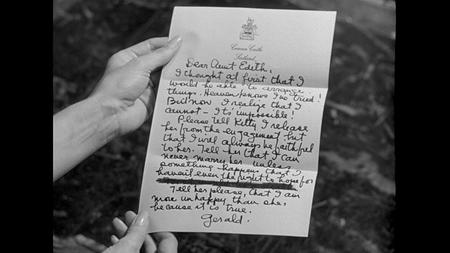 Craven Castle
Scotland
Dear Aunt Edith:
I thought at first that I
would be able to arrange
things. Heaven knows I've tried!
But now I realize that I
cannot - It's impossible!
Please tell Kitty I release
her from the engagement but
that I will always be faithful
to her. Tell her that I can
never marry her unless
something happens that I
haven't even the right to hope for
Tell her please, that I am
more unhappy than she,
because it is true.
Gerald.